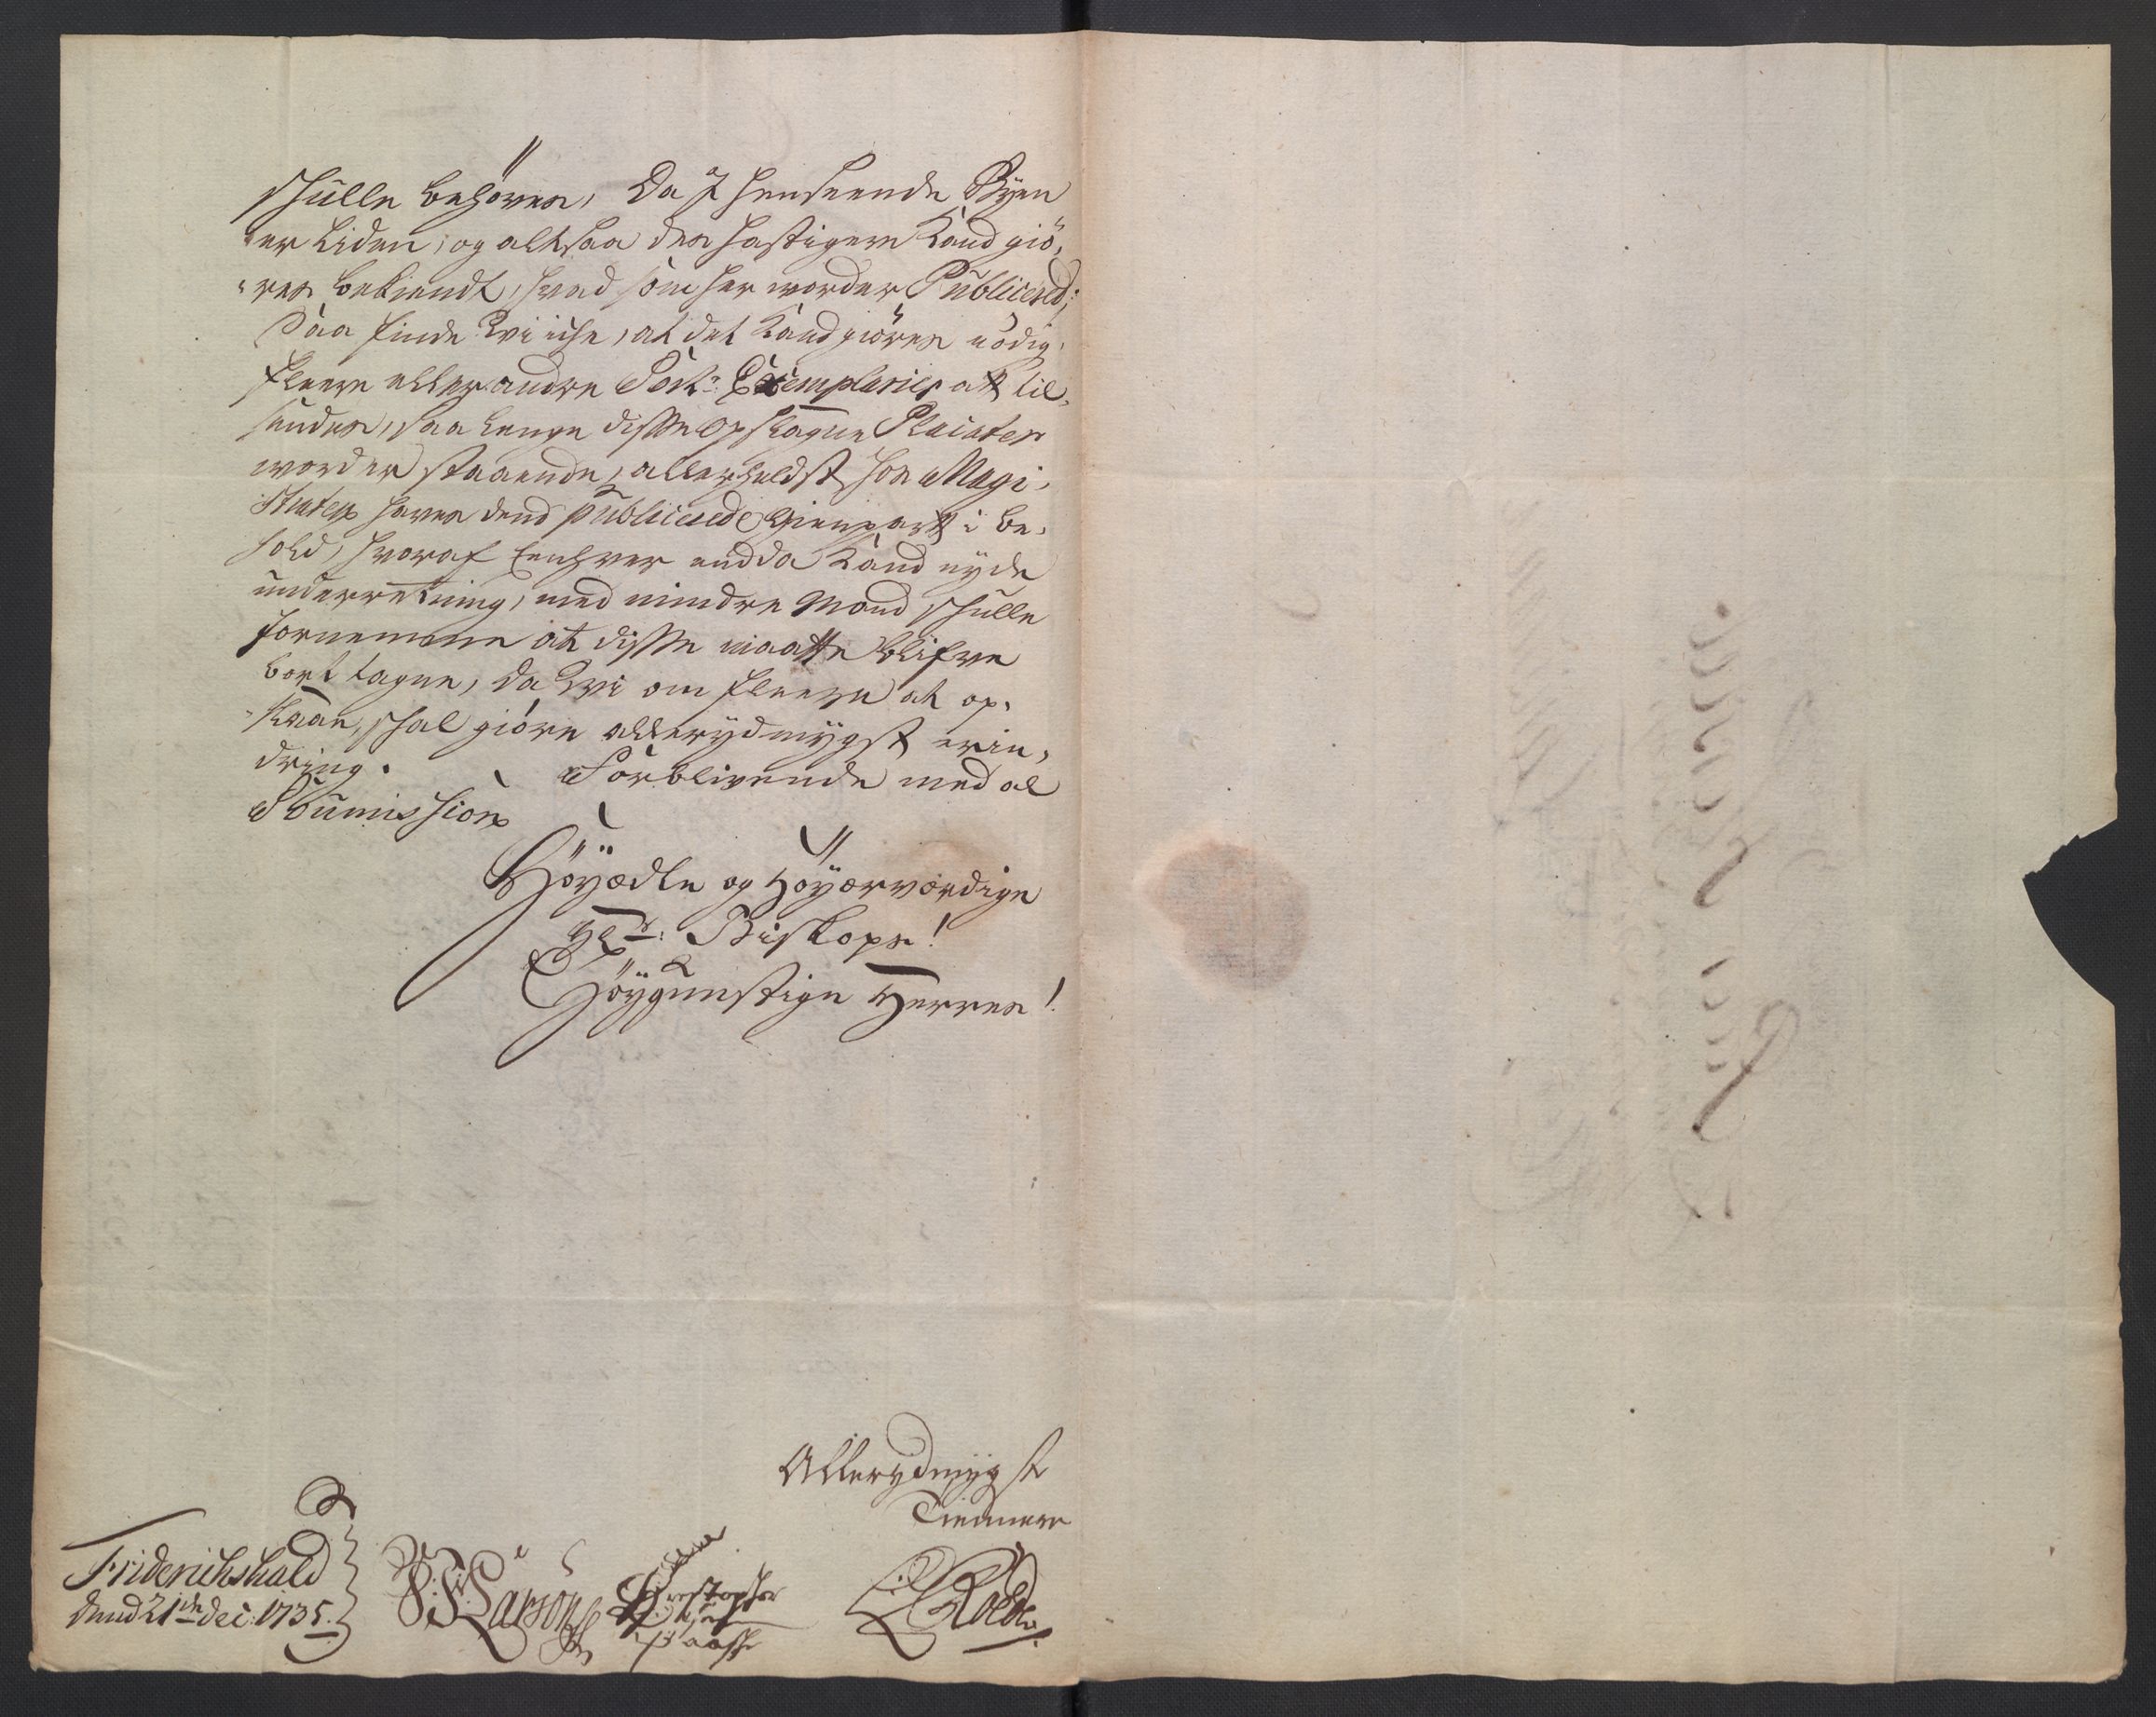 skulle behøves, Da I henseende Byen
er Liden, og altsaa des hastigere Kand giö¬
res bekiendt, hvad som her worder Publicered;
Saa finde Wi icke, at det Kand giöres nödig,
fleere eller andre Exemplarier at til¬
sendes, saa lenge disse opslagne Placater
worder staaende, allerhelst hos Magi¬
straten haves dend publicerede Gienpart i be¬
hold, hvoraf Enhver endda Kand nyde
underretning, med mindre Mand skulle
fornemme at disse maatte blifve
bort tagne, da Wi om fleere at op¬
slaae, skal giöre allerydmygst erin¬
dring. Forblivende med al
Soumission
Höyædle og Höyærværdige
Hr: Biskops!
Höygunstige Herres!
Allerydmygst
Tiennere
Friderichshald
dend 21de dec: 1735.